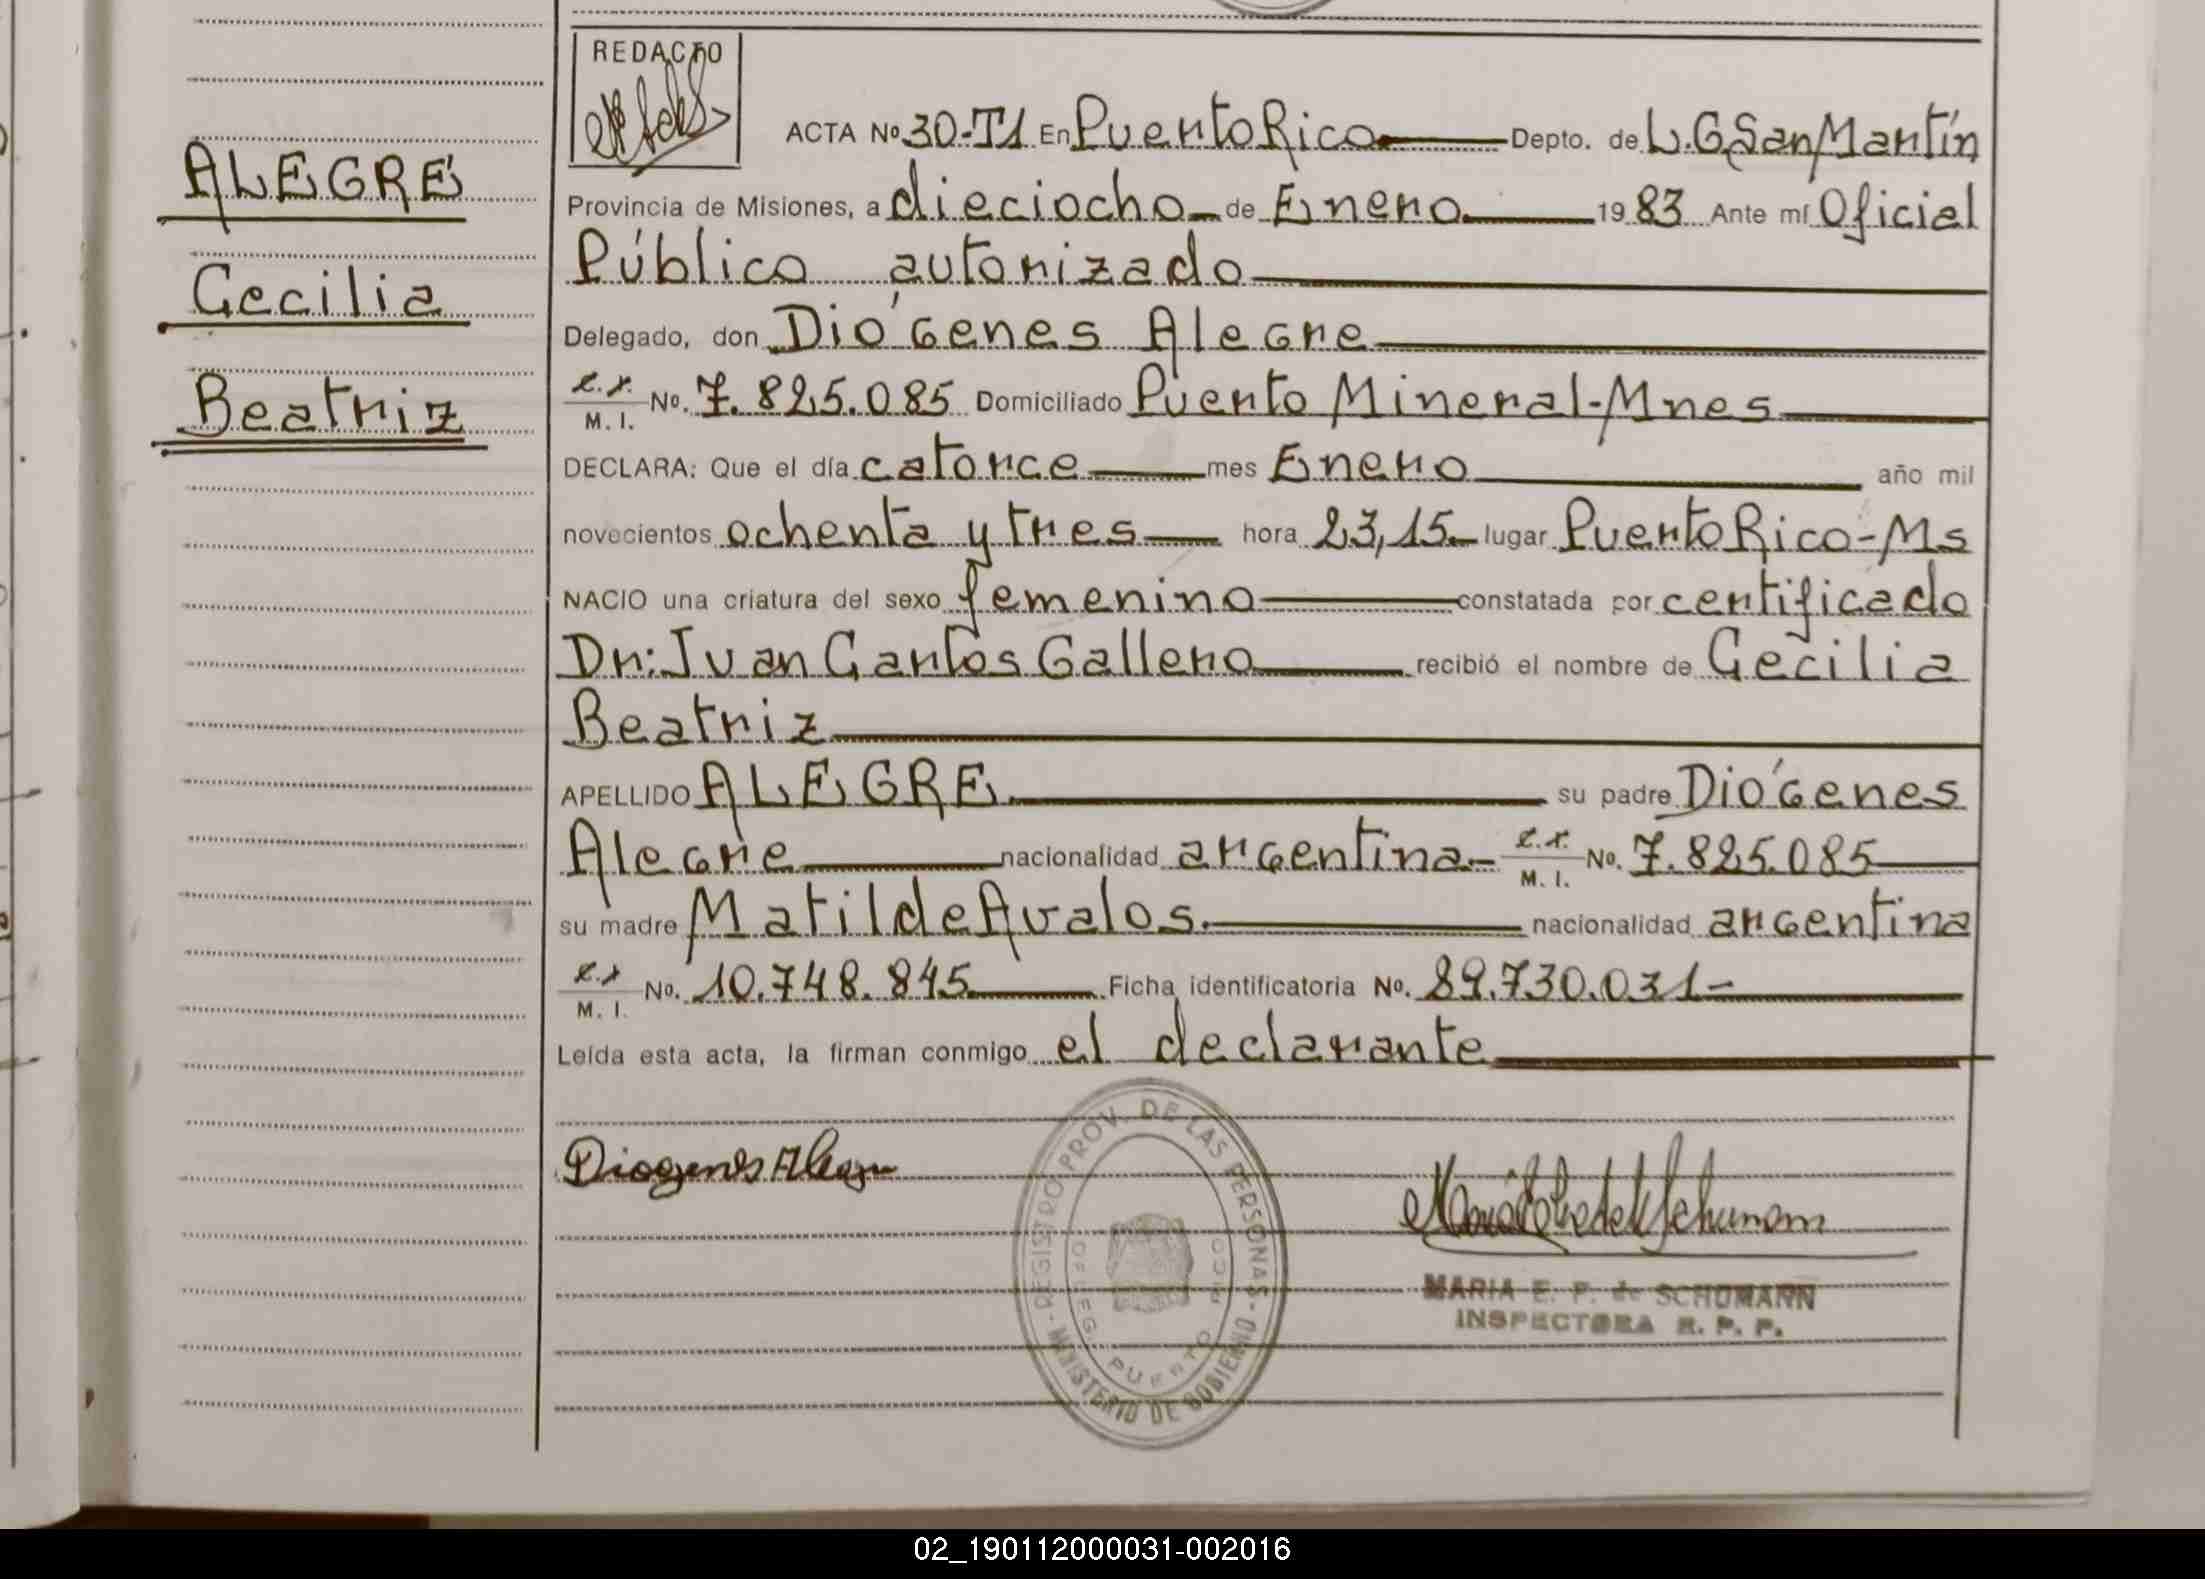 REDACTO
ALEGRE
Cecilia
Beatriz
ACTA Nº 30-T1 En Puerto Rico Depto. de L.G.San Martín
Provincia de Misiones, a dieciocho de Enero 1983 Ante mí Oficial
Público autorizado
Delegado, don Diógenes Alegre
M. I. Nº. 7.825.085 Domiciliado Puerto Mineral-Mnes
DECLARA: Que el día catorce mes Enero año mil
novecientos ochenta y tres hora 23,15 lugar Puerto Rico-Ms
NACIO una criatura del sexo femenino constatada por certificado
Dr: Juan Carlos Gallero recibió el nombre de Cecilia
Beatriz
APELLIDO ALEGRE su padre Diógenes
Alegre nacionalidad argentina M. I. Nº. 7.825.085
su madre Matilde Avalos nacionalidad argentina
M. I. Nº. 10.748.845 Ficha identificatoria Nº. 89.730.031-
Leída esta acta, la firman conmigo el declarante
Diogenes Alegre
REGISTRO PROV. DE LAS PERSONAS - MINISTERIO DE GOBIERNO -
PUERTO RICO
MARIA E. P. de SCHUMANN
INSPECTORA R. P. P.
02_190112000031-002016